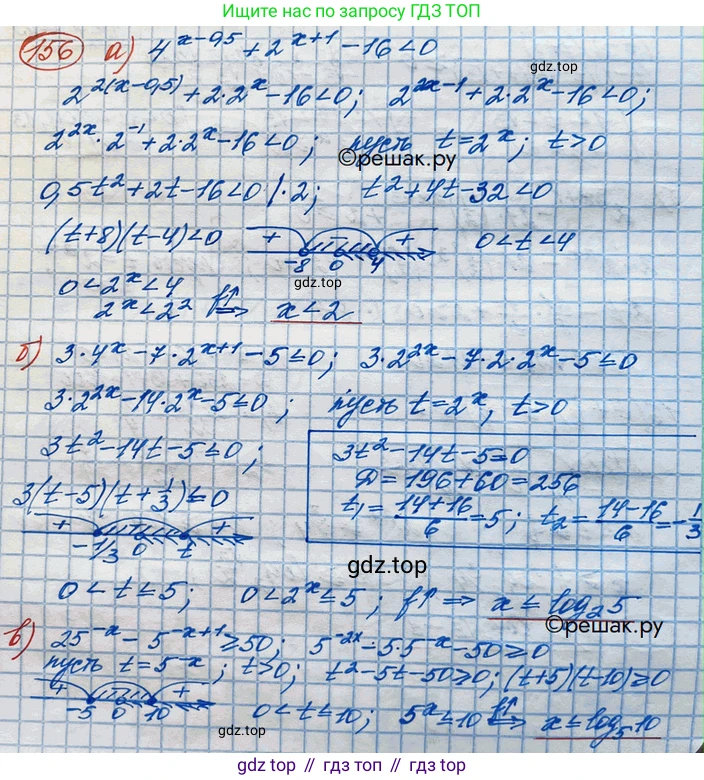 Ищите нас по запросу ГДЗ ТОП
156 а) 4^(x-0,5) + 2^(x+1) - 16 < 0
gdz.top
2^(2(x-0,5)) + 2·2^x - 16 < 0; 2^(2x-1) + 2·2^x - 16 < 0;
2^(2x)·2^(-1) + 2·2^x - 16 < 0; пусть t = 2^x; t > 0
©решак.ру
0,5t² + 2t - 16 < 0 |·2; t² + 4t - 32 < 0
(t+8)(t-4) < 0 + - + 0 < t < 4
-8 0 4
gdz.top
0 < 2^x < 4
2^x < 2² f↑ ⇒ x < 2
б) 3·4^x - 7·2^(x+1) - 5 ≤ 0; 3·2^(2x) - 7·2·2^x - 5 ≤ 0
3·2^(2x) - 14·2^x - 5 ≤ 0; пусть t = 2^x, t > 0
3t² - 14t - 5 ≤ 0;
3t² - 14t - 5 = 0
D = 196 + 60 = 256
t₁ = (14+16)/6 = 5; t₂ = (14-16)/6 = -1/3
3(t-5)(t+1/3) ≤ 0
+ - +
-1/3 0 t
©решак.ру
gdz.top
0 < t ≤ 5; 0 < 2^x ≤ 5; f↑ ⇒ x ≤ log₂5
©решак.ру
в) 25^(-x) - 5^(-x+1) ≥ 50; 5^(-2x) - 5·5^(-x) - 50 ≥ 0
пусть t = 5^(-x); t > 0; t² - 5t - 50 ≥ 0; (t+5)(t-10) ≥ 0
+ - +
-5 0 10
gdz.top
0 < t ≤ 10; 5^x ≤ 10 f↑ ⇒ x ≤ log₅10
Мы в ютубе по запросу: ГДЗ ТОП